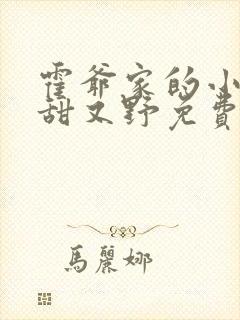 霍爷家的小
甜又野免费
馬麗娜